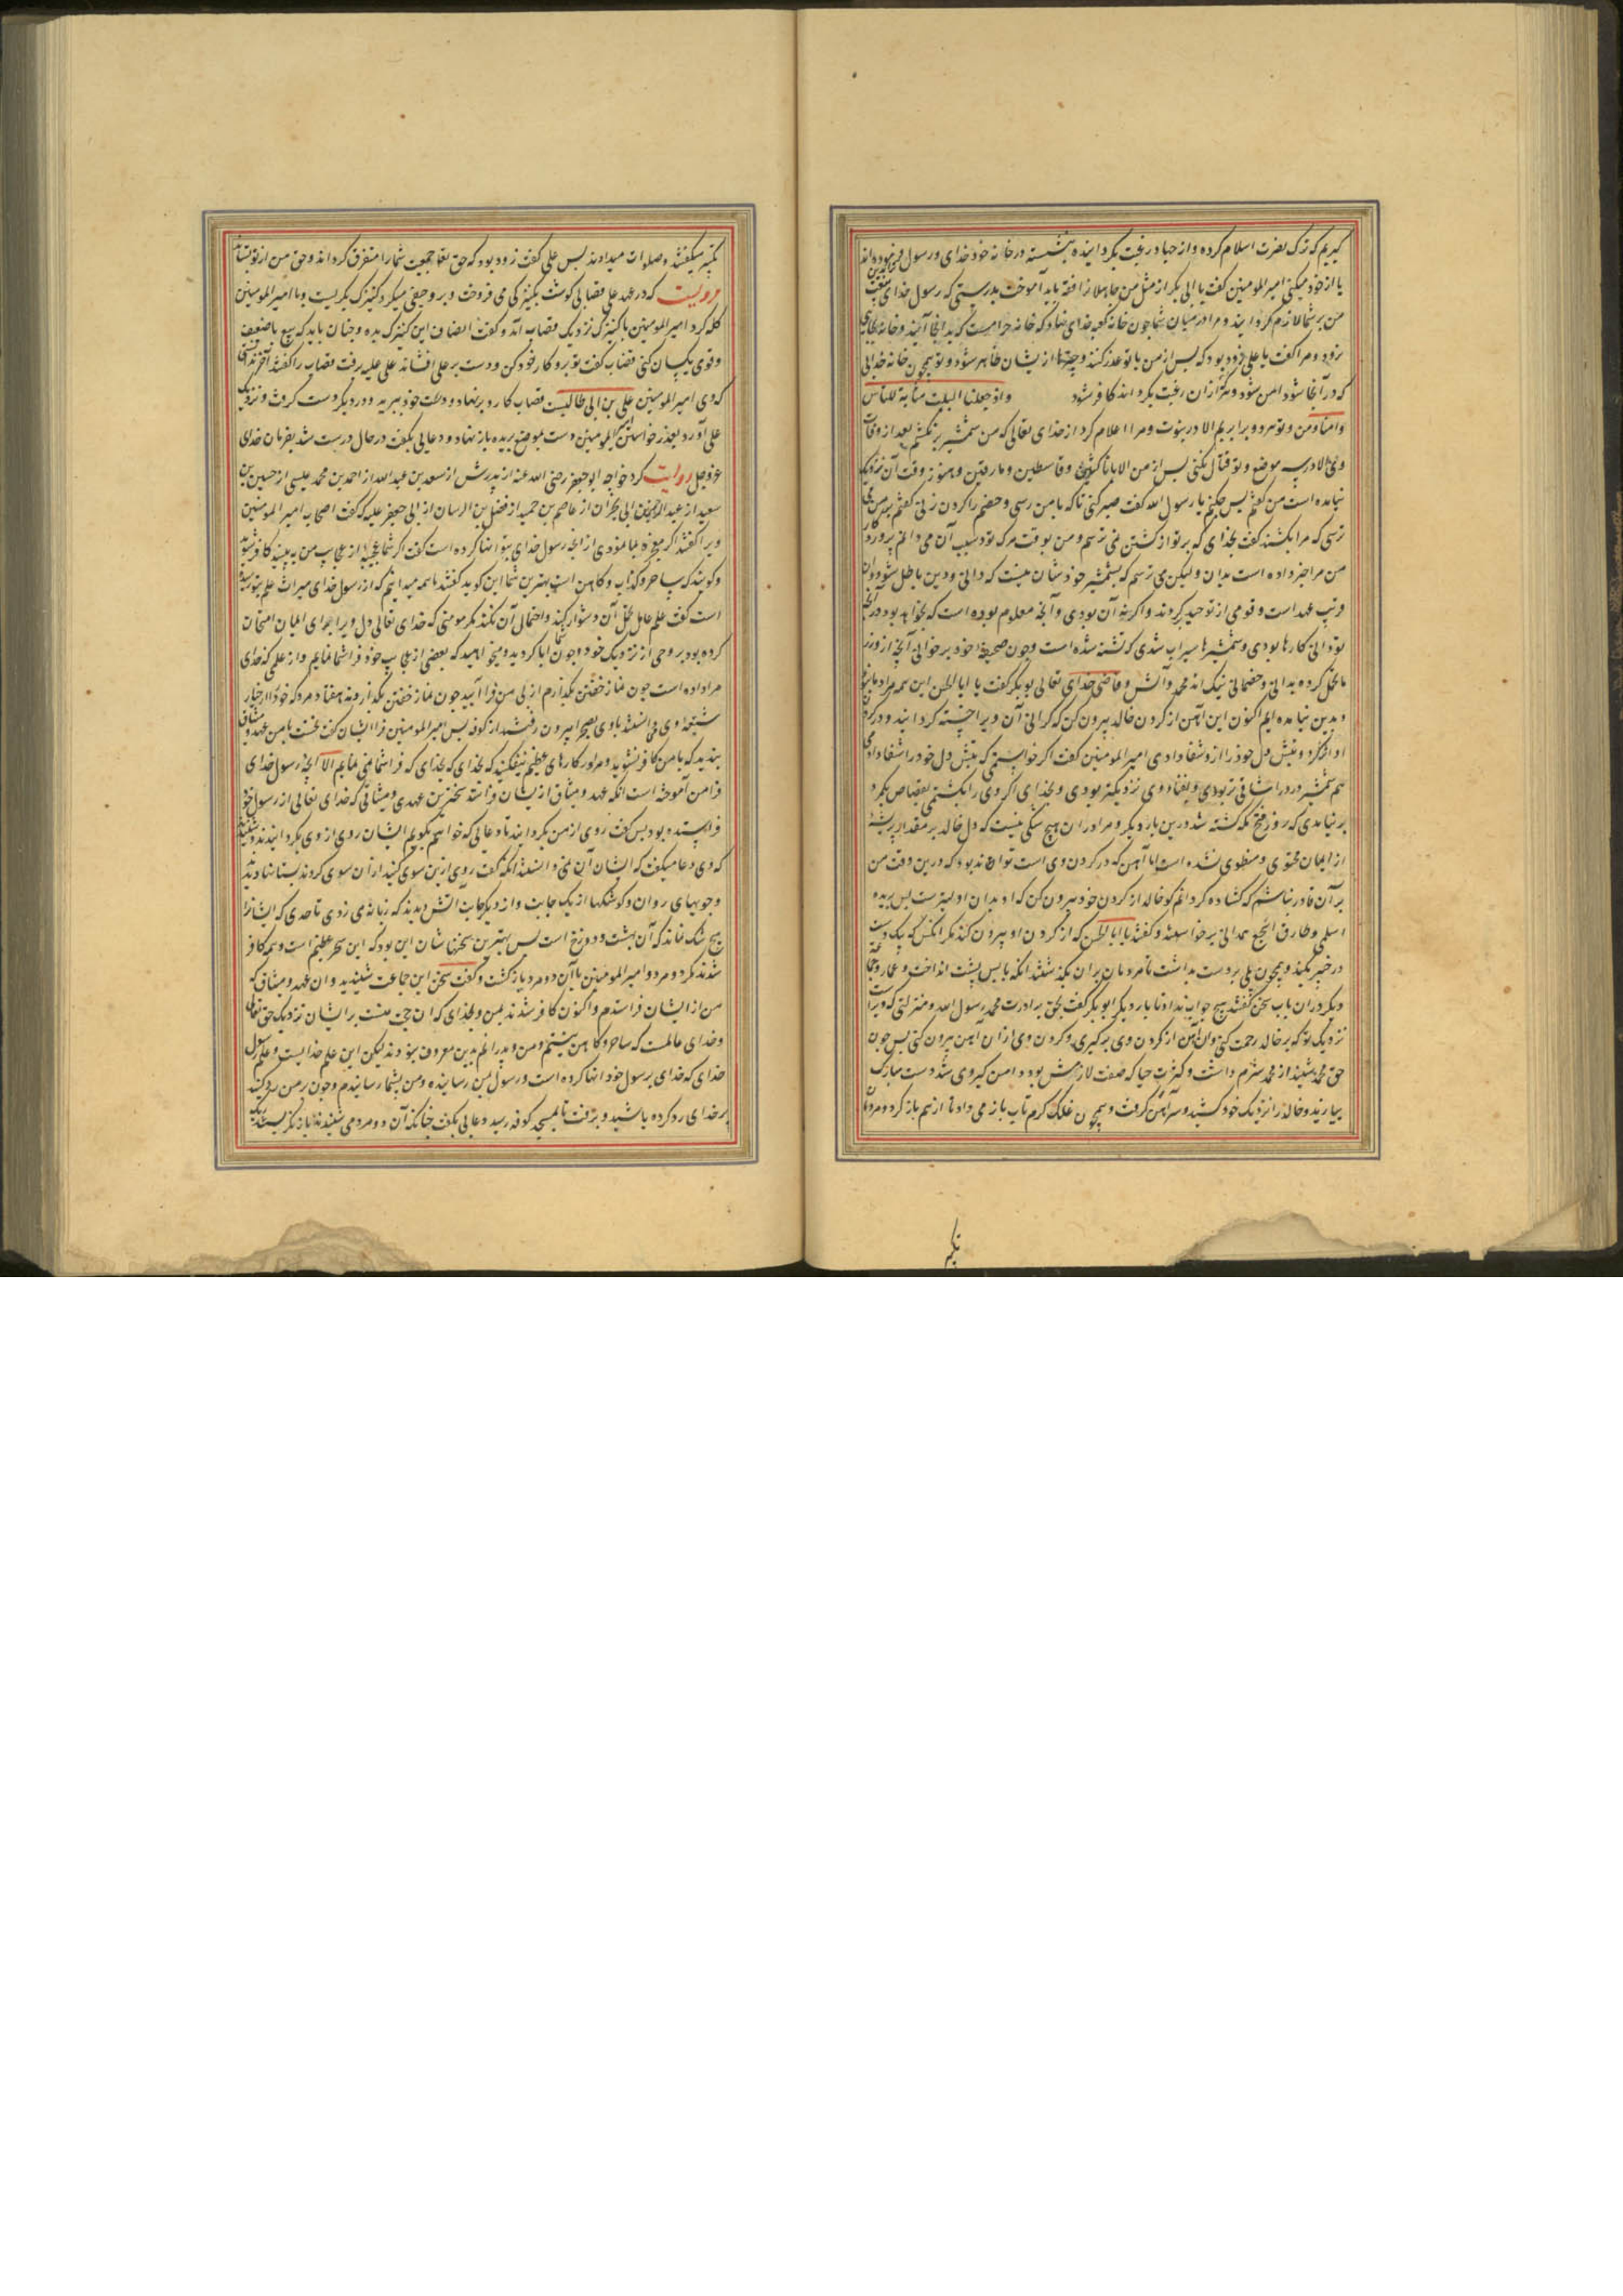 گیریم که ترک نصرت اسلام کرده و از جهاد رغبت بگردانیده بنشسته در خانه خود خدای و رسول فرموده‌اند
یا از خود میکنی امیرالمومنین گفت یا ابی بکر از مثل من جاهلان را فقه باید آموخت بدرستی که رسول خدای
من بر شما لازم گردانید و مرا در میان شما چون خانه کعبه خدای نهاد که خانه حرامست که بدانجا آیند و خانه بجایی
نرود و مرا گفت یا علی زود بود که پس از من با تو عذر کنند و چیزها از ایشان ظاهر شود و تو همچون خانه خدایی
که در آنجا شود امن شود و هرکه از آن رغبت بگرداند کافر شود واذ جعلنا البیت مثابة للناس
وامنا ومن و تو هر دو برابریم الا در نبوت و مرا اعلام کرد از خدای تعالی که من شمشیر برنکشم بعد از وفات
وی الا در سه موضع و تو قتال نکنی پس از من الا با ناکثین و قاسطین و مارقین و هنوز وقت آن نزدیک
نیامده است من گفتم پس چکنم یا رسول الله گفت صبر کنی تا که بامن رسی و خصم را گردن زنی گفتم
ترسی که مرا بکشند گفت بخدای که بر تو از کشتن نمی ترسم و من بوقت مرگ تو و سبب آن می دانم پروردگار
من مرا خبر داده است بدان و لیکن می ترسم که بشمشیر خود شان نیست کردانی و دین باطل شود
قریب عهد است و قومی از توحید بگردند و اگر نه آن بودی و آنچه معلوم بوده است که بخواهد بود
تو دانی کارها بودی و شمشیرها سیراب شدی که تشنه شده است و چون صحیفه خود برخوانی آنچه از وزر
ما تحمل کرده بدانی و خصمانی نیک اند محمد و آلش و قاضی خدای تعالی بو بکر گفت یا ابا الحسن این همه مراد ما
و بدین نیامده ایم اکنون این آهن از گردن خالد بیرون کن که گرانی آن ویرا خسته گردانید و در گردن
او اثر کرد و تبش دل خود را از وی شفا دادی امیرالمومنین گفت اگر خواستمی که تبش دل خود را شفا دادمی
هم شمشیر درد را شافی تر بودی و بفنا وی نزدیکتر بودی و بخدای اگر وی را بکشتمی بقصاص یکمرد
برنیامدی که روز فتح مکه کشته شد درین بار دیگر و مرا در آن هیچ شکی نیست که دل خالد بر مقدار پر پشه
از ایمان محتوی و منطوی نشده است اما آهن که در گردن وی است تواند بود که درین وقت من
بر آن قادر نباشم که گشاده گردانم گو خالد از گردن خود بیرون کن که او بدان اولیترست پس بریده
اسلمی و طارق اشجع همدانی برخواستند و گفتند یا ابا الحسن که از گردن او بیرون کند مگر آنکس که بیک دست
در خیبر بکند و همچون پلی بر دست بداشت تا مردمان بر آن بگذشتند آنگه با پس پشت انداخت و عمار
دیگر در آن باب سخن گفتند هیچ جواب نداد تا بار دیگر ابو بکر گفت بحق برادرت محمد رسول الله و منزلتی که ویرا
نزدیک تو که بر خالد رحمت کنی و آن آهن از گردن وی برگیری و گردن وی از آن آهن بیرون کنی پس چون
حق محمد بشنید از محمد شرم داشت و کثرت حیا که صفت لازمش بود و امن گیر وی شد دست مبارک
بیازید و خالد را نزدیک خود کشید و سر آهن گرفت و همچون غلک گرم تاب باز می داد تا از هم باز کرد و مردمان
تکبیر
تکبیر میگفتند و صلوات میدادند پس علی گفت زود بود که حق تعالی جمعیت شما را متفرق گرداند و حق من از تو بستاند
مرویست که در عهد علی قصابی گوشت بکنیزکی می فروخت و بر وی حیفی میکرد کنیزک بگریست و با امیر المومنین
گله کرد امیرالمومنین با کنیزک نزدیک قصاب آمد و گفت انصاف این کنیزک بده و چنان باید که بیع با ضعیف
و قوی یکسان کنی قصاب گفت تو برو کار خود کن و دست بر علی افشاند علی علیه برفت قصاب را گفتند
که وی امیرالمومنین علی بن ابی طالبست قصاب کارد برنهاد و دست خود ببرید و در دیگر دست گرفت و نزدیک
علی آورد بعذر خواستن امیرالمومنین دست بموضع بریده باز نهاد و دعایی بگفت در حال درست شد بفرمان خدای
عزوجل روایت کرد خواجه ابو جعفر رضی الله عنه از پدرش از سعد بن عبد الله از احمد بن محمد عیسی از حسین بن
سعید از عبد الرحمن بن ابی نجران از عاصم بن حمید از فضیل بن الرسان از ابی جعفر علیه که گفت اصحاب امیر المومنین
ویرا گفتند اگر معجزه بما نمودی از آنچه رسول خدای بتو انها کرده است گفت اگر شما عجیبه از عجایب من به بینید کافر شوید
و گویند که ساحر و کذاب و کاهن است بهترین شما این گوید گفتند ما همه میدانیم که از رسول خدای میراث علم بتو رسیده
است گفت علم عالم تحمل آن دشوار کنند و احتمال آن نکند مگر مومنی که خدای تعالی دل ویرا برای ایمان امتحان
کرده بود بروحی از نزدیک خود و چون شما ابا کردید و میخواهید که بعضی از عجایب خود فرا شما نمایم و از علمی که خدای
مرا داده است چون نماز خفتن بگذارم از پی من فرا آیید چون نماز خفتن بگذارد هفتاد مرد که خود از خیار
شیعه وی می دانستند با وی بصحرا بیرون رفتند از کوفه پس امیر المومنین فرا ایشان گفت نخست بامن عهد و میثاق
بندید که بامن کافر نشوید و مرا در کارهای عظیم نیفکنید که بخدای که فرا شما نمی نمایم الا آنچه رسول خدای
فرا من آموخته است آنگه عهد و میثاق از ایشان فرا ستد سختترین عهدی و میثاقی که خدای تعالی از رسول خود
فرا ستده بود پس گفت روی از من بگردانید تا دعایی که خواهیم بگویم ایشان روی از وی بگردانیدند و شنیدند
که وی دعا میگفت که ایشان آن نمی دانستند آنگه گفت روی ازین سوی کنید از آن سوی کردند بستانها دیدند
و جویهای روان و کوشکها از یک جانب و از دیگر جانب آتش دیدند که زبانه می زدی تا حدی که ایشانرا
هیچ شک نماند که آن بهشت و دوزخ است پس بهترین سخنها شان این بود که این سحر عظیم است و همه کافر
شدند مگر دو مرد و امیر المومنین با آن دو مرد باز گشت و گفت سخن این جماعت شنیدید و آن عهد و میثاق که
من از ایشان فرا ستدم و اکنون کافر شدند بمن و بخدای که آن حجت منست بر ایشان نزدیک حق تعالی
و خدای عالمست که ساحر و کاهن نیستم و من و پدرانم بدین معروف نبودند لیکن این علم خدایست و علم رسول
خدای که خدای برسول خود انها کرده است و رسول بمن رسانیده و من بشما رسانیدم و چون بر من رد کنید
بر خدای رد کرده باشید و برفت تا بمسجد کوفه رسید دعایی بگفت چنانکه آن دو مرد می شنیدند تا باز نگریستند